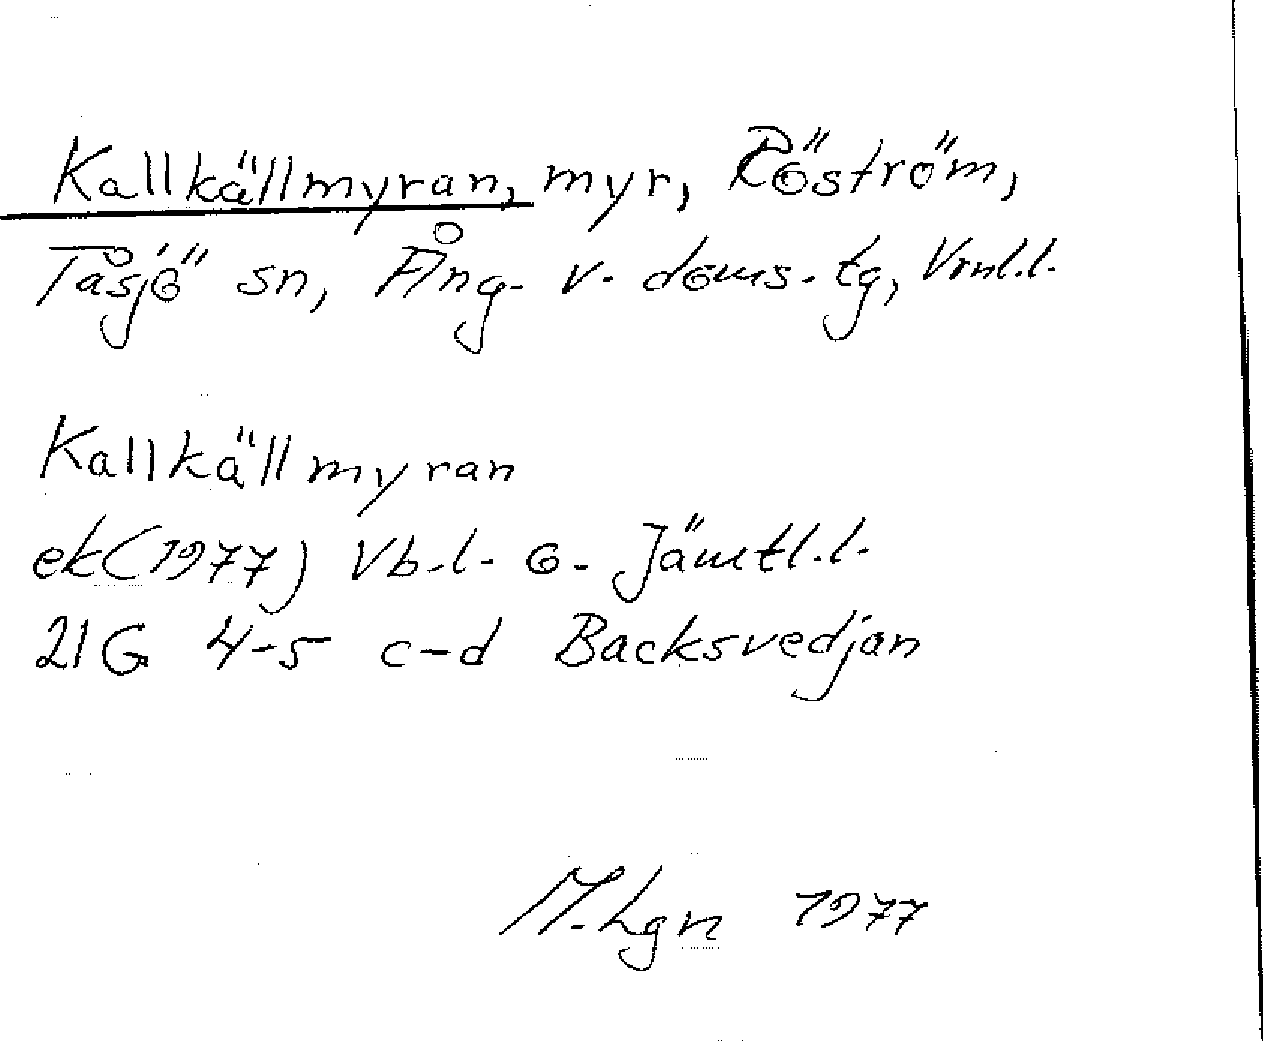 Kallkällmyran, myr, Röström,
Tåsjö sn, Ång. v. doms. tg, Vnl.l.
Kallkällmyran
ek (1977) Vb.l. o. Jämtl.l.
21G 4-5 c-d Backsvedjan
M. Lgn 1977